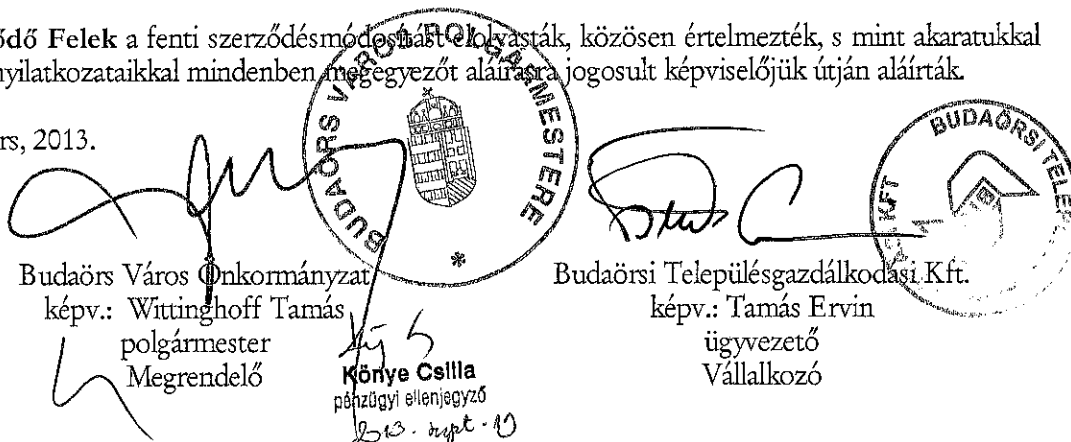 ődő Felek a fenti szerződésmódosítást elolvasták, közösen értelmezték, s mint akaratukkal
nyilatkozataikkal mindenben megegyezőt aláírásra jogosult képviselőjük útján aláírták.
rs, 2013.
BUDAÖRS VÁROS POLGÁRMESTERE
*
BUDAÖRSI TELEP
KFT
Budaörs Város Önkormányzat
képv.: Wittinghoff Tamás
polgármester
Megrendelő
Könye Csilla
pénzügyi ellenjegyző
2013. szept. 19
Budaörsi Településgazdálkodási Kft.
képv.: Tamás Ervin
ügyvezető
Vállalkozó